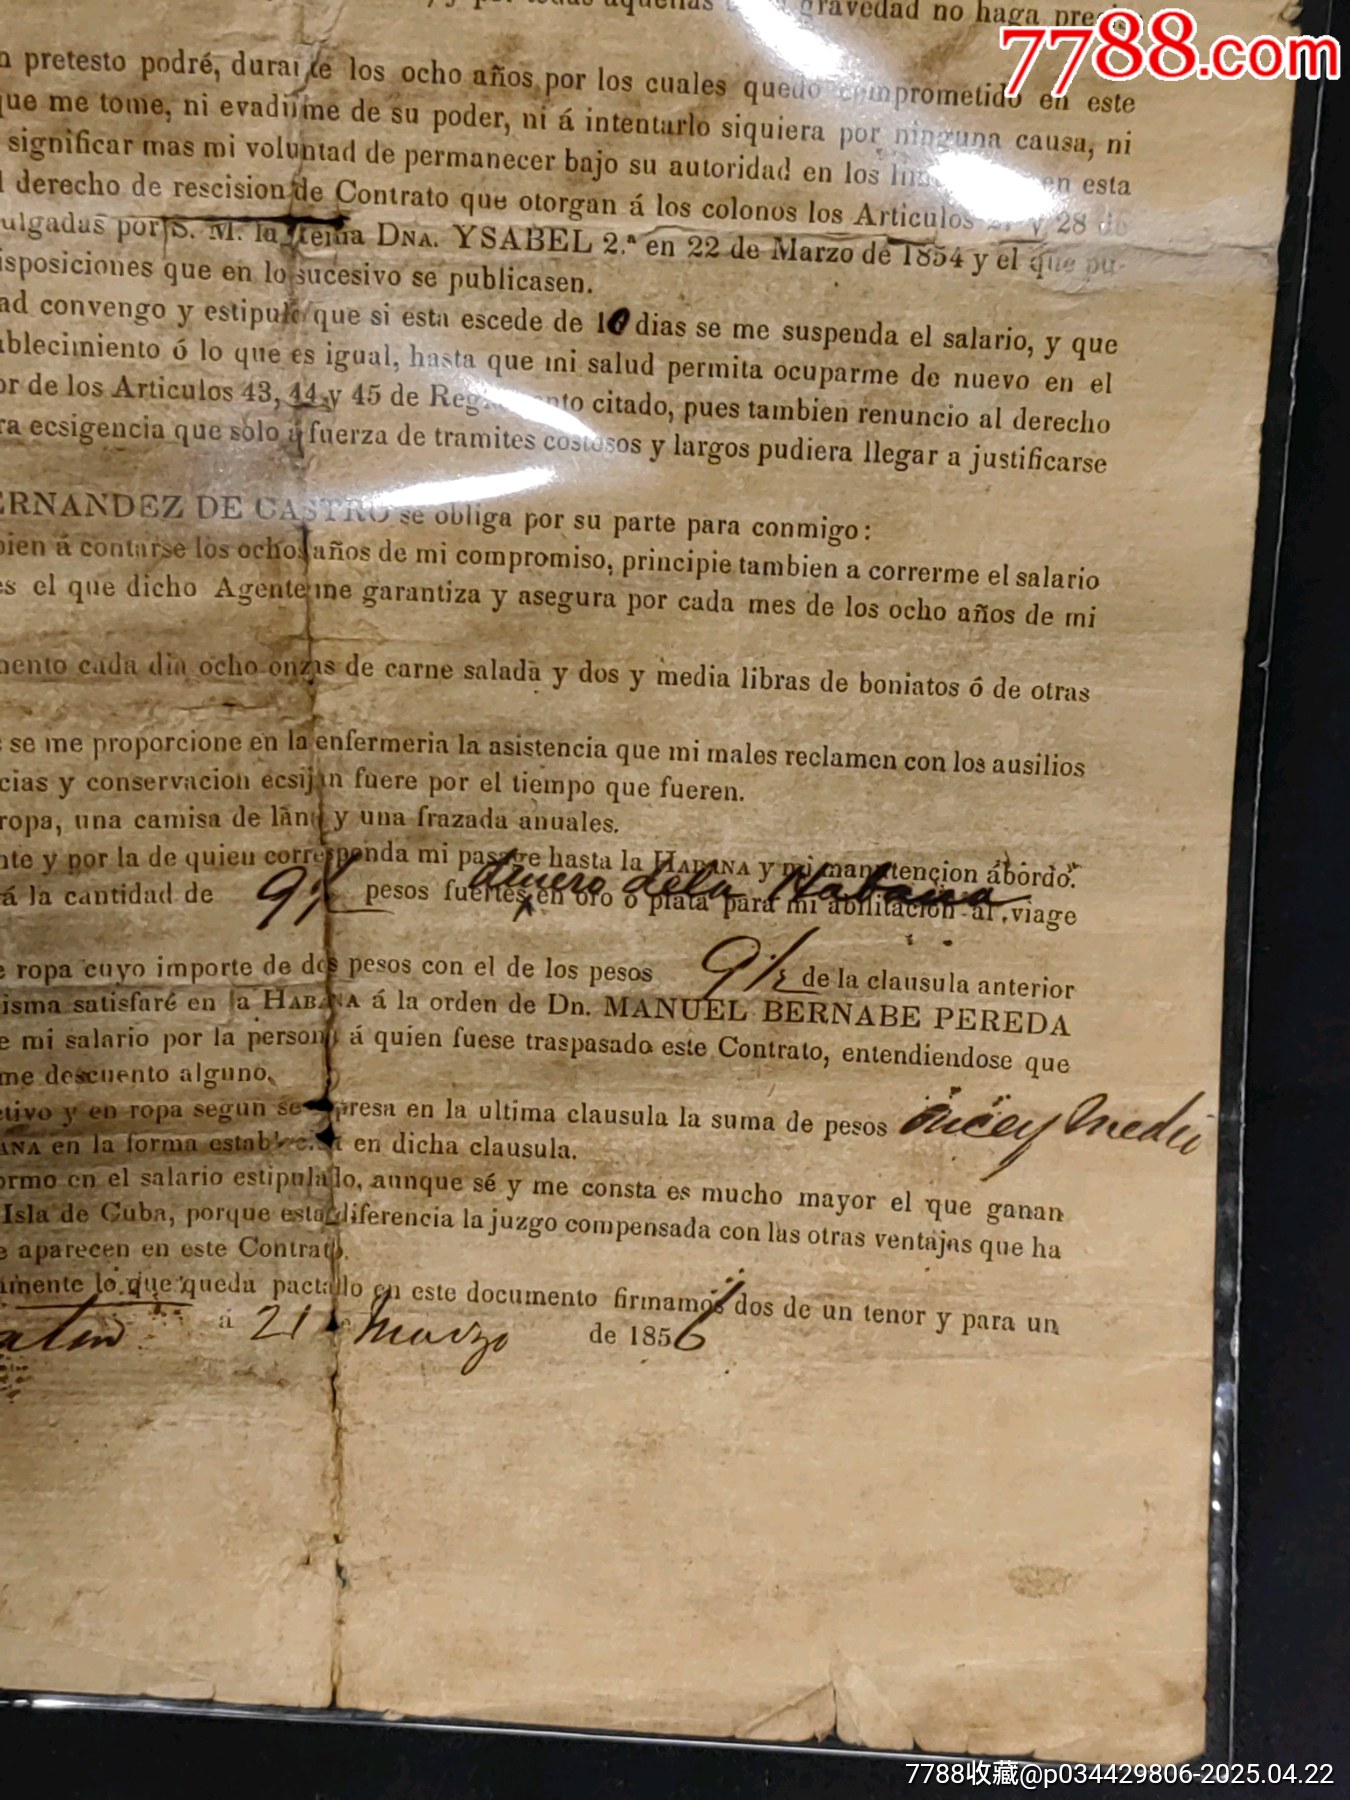 7788.com
gravedad no haga
pretesto podré, durante los ocho años por los cuales quedo comprometido en este
que me tome, ni evadirme de su poder, ni á intentarlo siquiera por ninguna causa, ni
significar mas mi voluntad de permanecer bajo su autoridad en los en esta
derecho de rescision de Contrato que otorgan á los colonos los Articulos y 28 de
ulgadas por S. M. la reina DNA. YSABEL 2.ª en 22 de Marzo de 1854 y el que pu-
isposiciones que en lo sucesivo se publicasen.
ad convengo y estipulo que si esta escede de 10 dias se me suspenda el salario, y que
ablecimiento ó lo que es igual, hasta que mi salud permita ocuparme de nuevo en el
or de los Articulos 43, 44 y 45 de Reglamento citado, pues tambien renuncio al derecho
ra ecsigencia que solo á fuerza de tramites costosos y largos pudiera llegar a justificarse
ERNANDEZ DE CASTRO se obliga por su parte para conmigo:
bien á contarse los ochos años de mi compromiso, principie tambien a correrme el salario
es el que dicho Agente me garantiza y asegura por cada mes de los ocho años de mi
mento cada dia ocho onzas de carne salada y dos y media libras de boniatos ó de otras
se me proporcione en la enfermeria la asistencia que mi males reclamen con los ausilios
cias y conservacion ecsijan fuere por el tiempo que fueren.
ropa, una camisa de lana y una frazada anuales.
nte y por la de quien corresponda mi pasage hasta la HABANA y mi manutencion ábordo.
dinero dela Habana
á la cantidad de 9½ pesos fuertes en oro o plata para mi abilitacion al viage
e ropa cuyo importe de dos pesos con el de los pesos 9½ de la clausula anterior
isma satisfaré en la HABANA á la orden de Dn. MANUEL BERNABE PEREDA
e mi salario por la persona á quien fuese traspasado este Contrato, entendiendose que
me descuento alguno.
ctivo y en ropa segun se espresa en la ultima clausula la suma de pesos once y medio
ANA en la forma establecida en dicha clausula.
ormo en el salario estipulado, aunque sé y me consta es mucho mayor el que ganan
Isla de Cuba, porque esta diferencia la juzgo compensada con las otras ventajas que ha
e aparecen en este Contrato.
amente lo que queda pactado en este documento firmamos dos de un tenor y para un
á 21 de Marzo de 1856
7788收藏@p034429806-2025.04.22